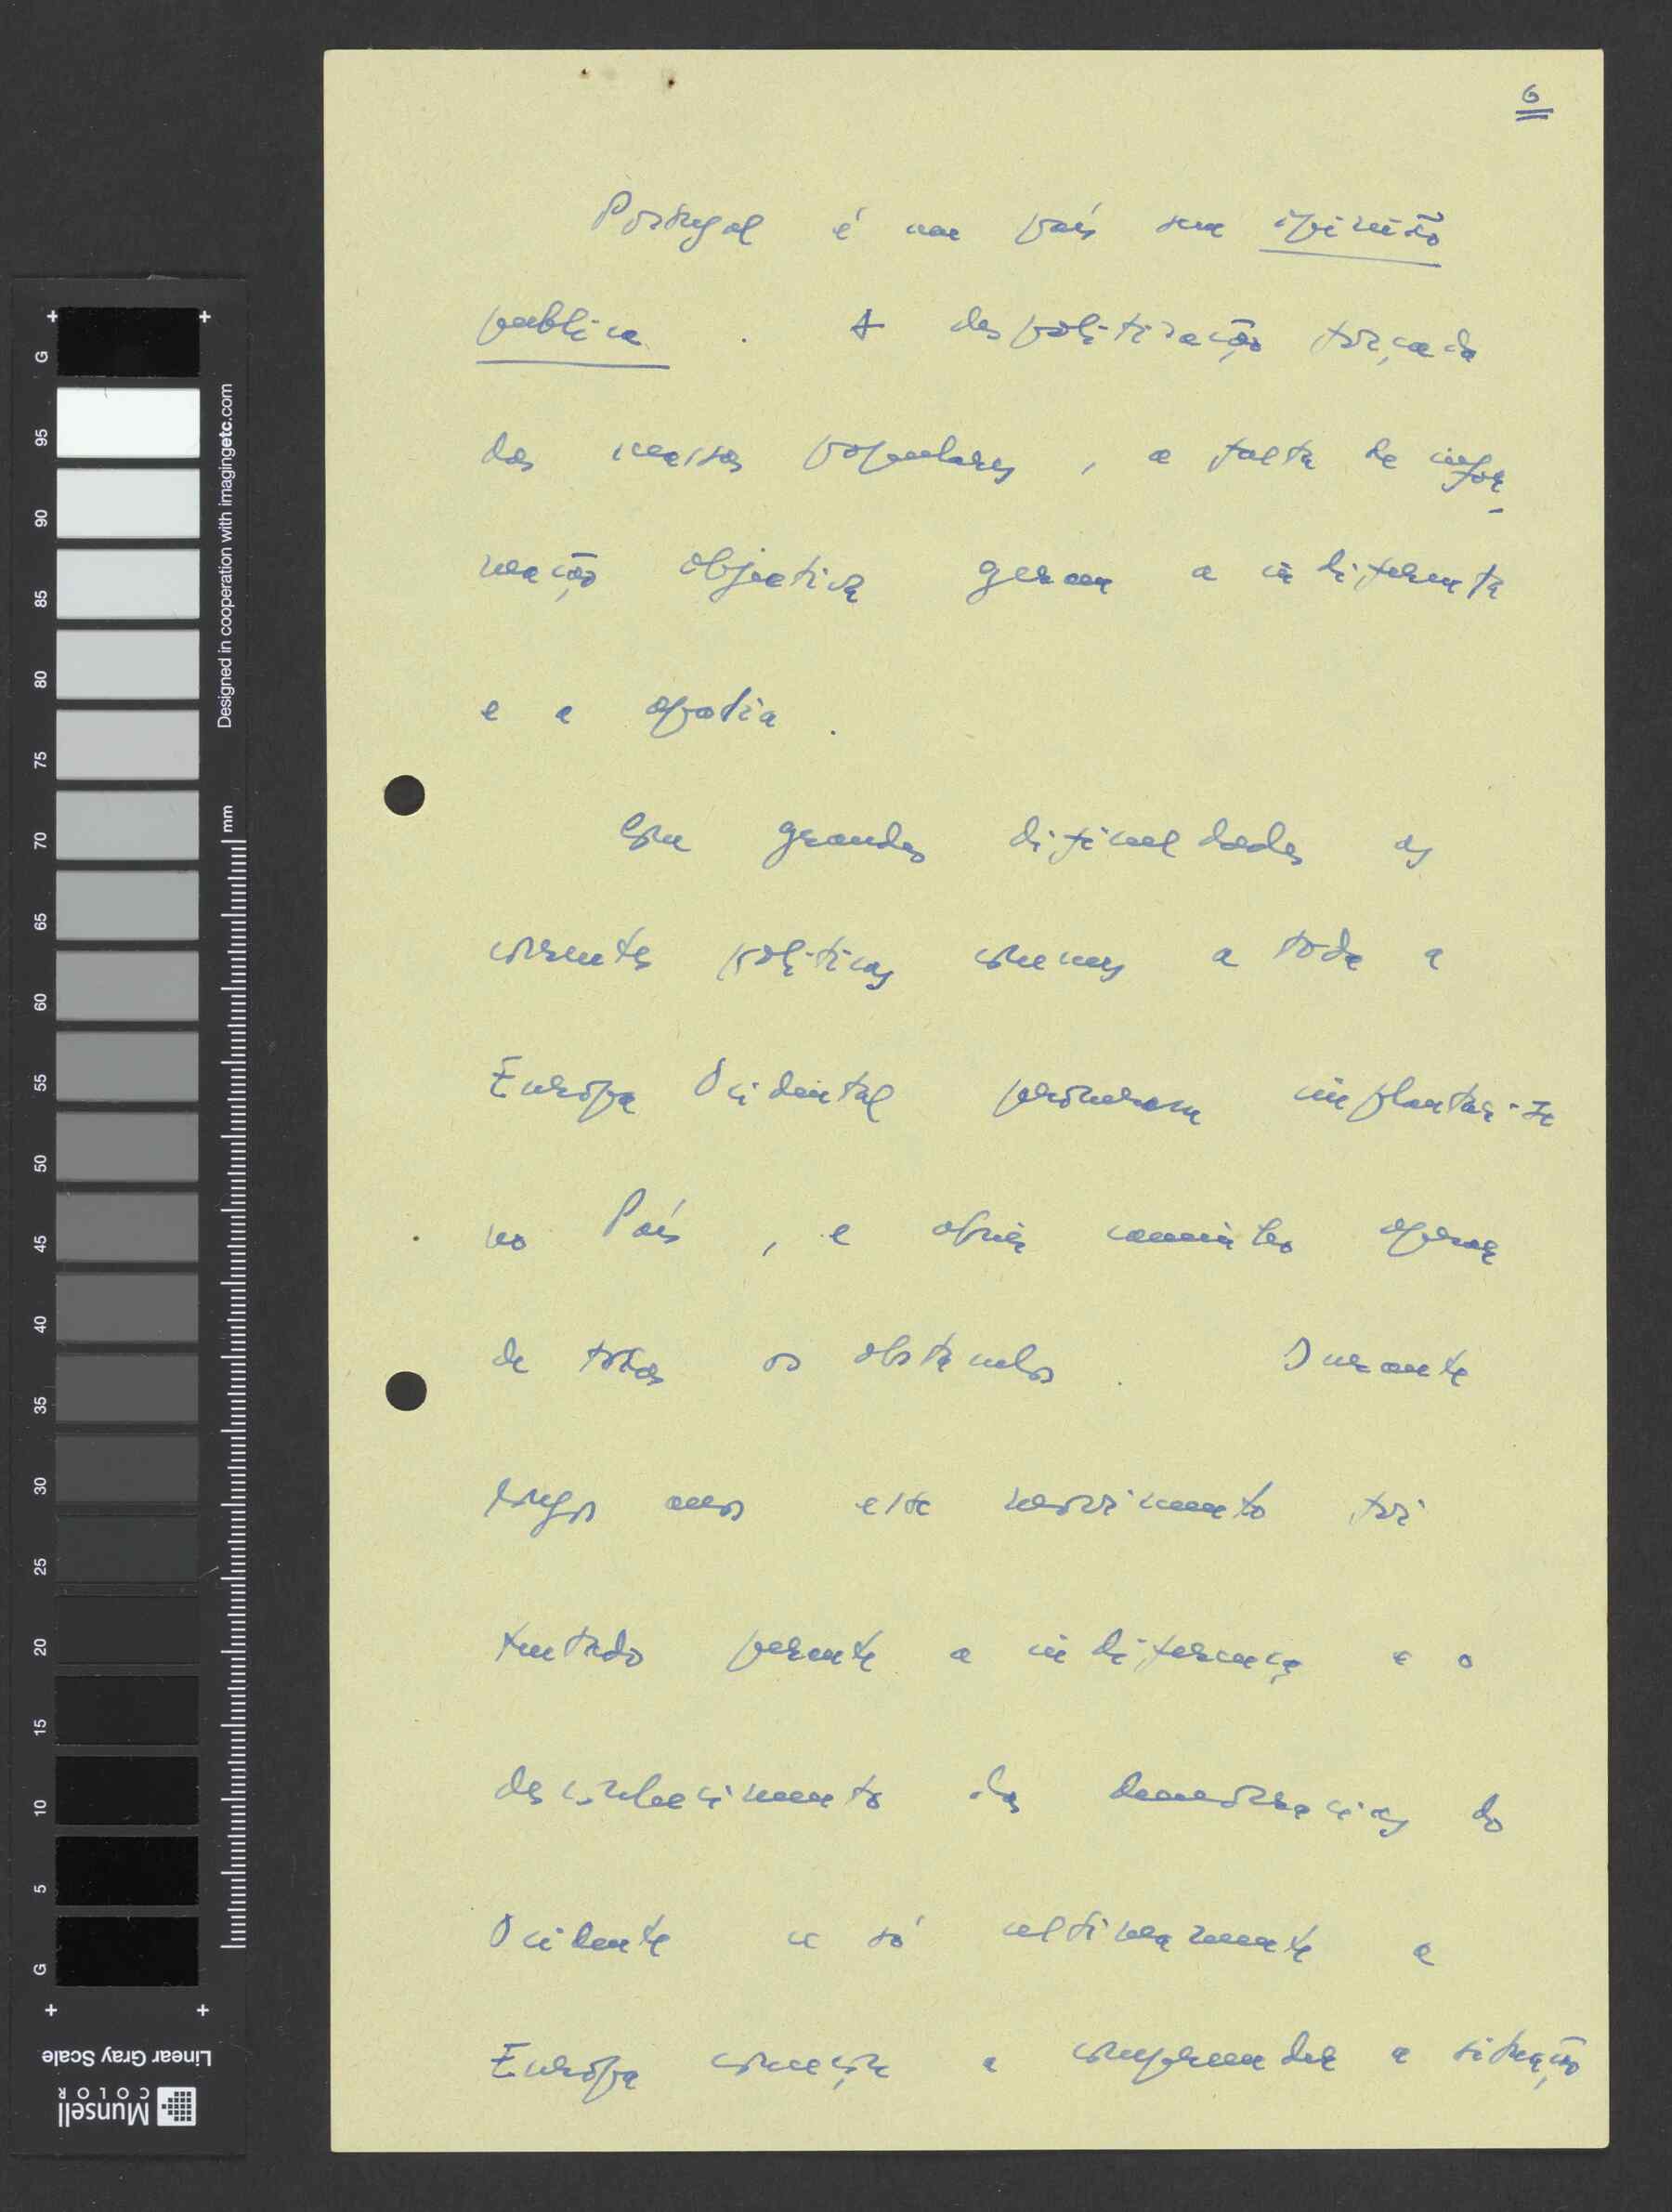 6
Portugal é um país sem opinião
publica. A despolitização forçada
das massas populares, a falta de infor-
mação objectiva geram a indiferenta
e a apatia.
Com grandes dificuldades as
correntes políticas comuns a toda a
Europa Ocidental procuram implantar-se
no País, e abrir caminho apesar
de todos os obstaculos. Durante
longos anos esse movimento foi
tentado perante a indiferença e o
desconhecimento das democracias do
Ocidente e só ultimamente a
Europa começa a compreender a situação
G
95
90
85
80
75
70
65
60
55
50
45
40
35
30
25
20
15
10
5
G
Designed in cooperation with imagingetc.com
mm
Linear Gray Scale
Munsell
COLOR